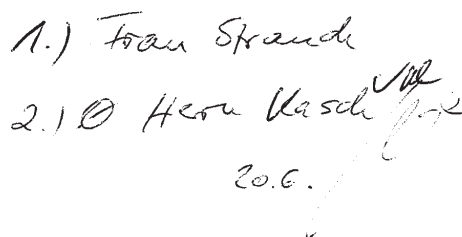 1.) Frau Strauch
2.) Ø Herrn Kasch
20.6.